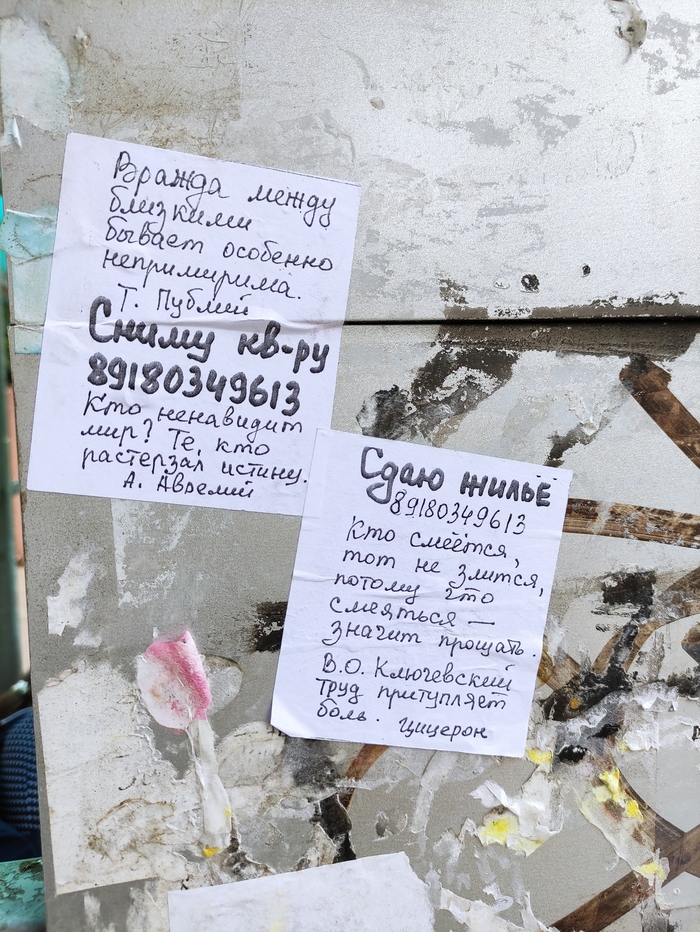 Вражда между
близкими
бывает особенно
непримирима.
Т. Публий
Сниму кв-ру
89180349613
Кто ненавидит
мир? Те, кто
растерзал истину.
А. Аврелий
Сдаю жильё
89180349613
Кто смеётся,
тот не злится,
потому что
смеяться —
значит прощать.
В.О. Ключевский
Труд притупляет
боль. Цицерон